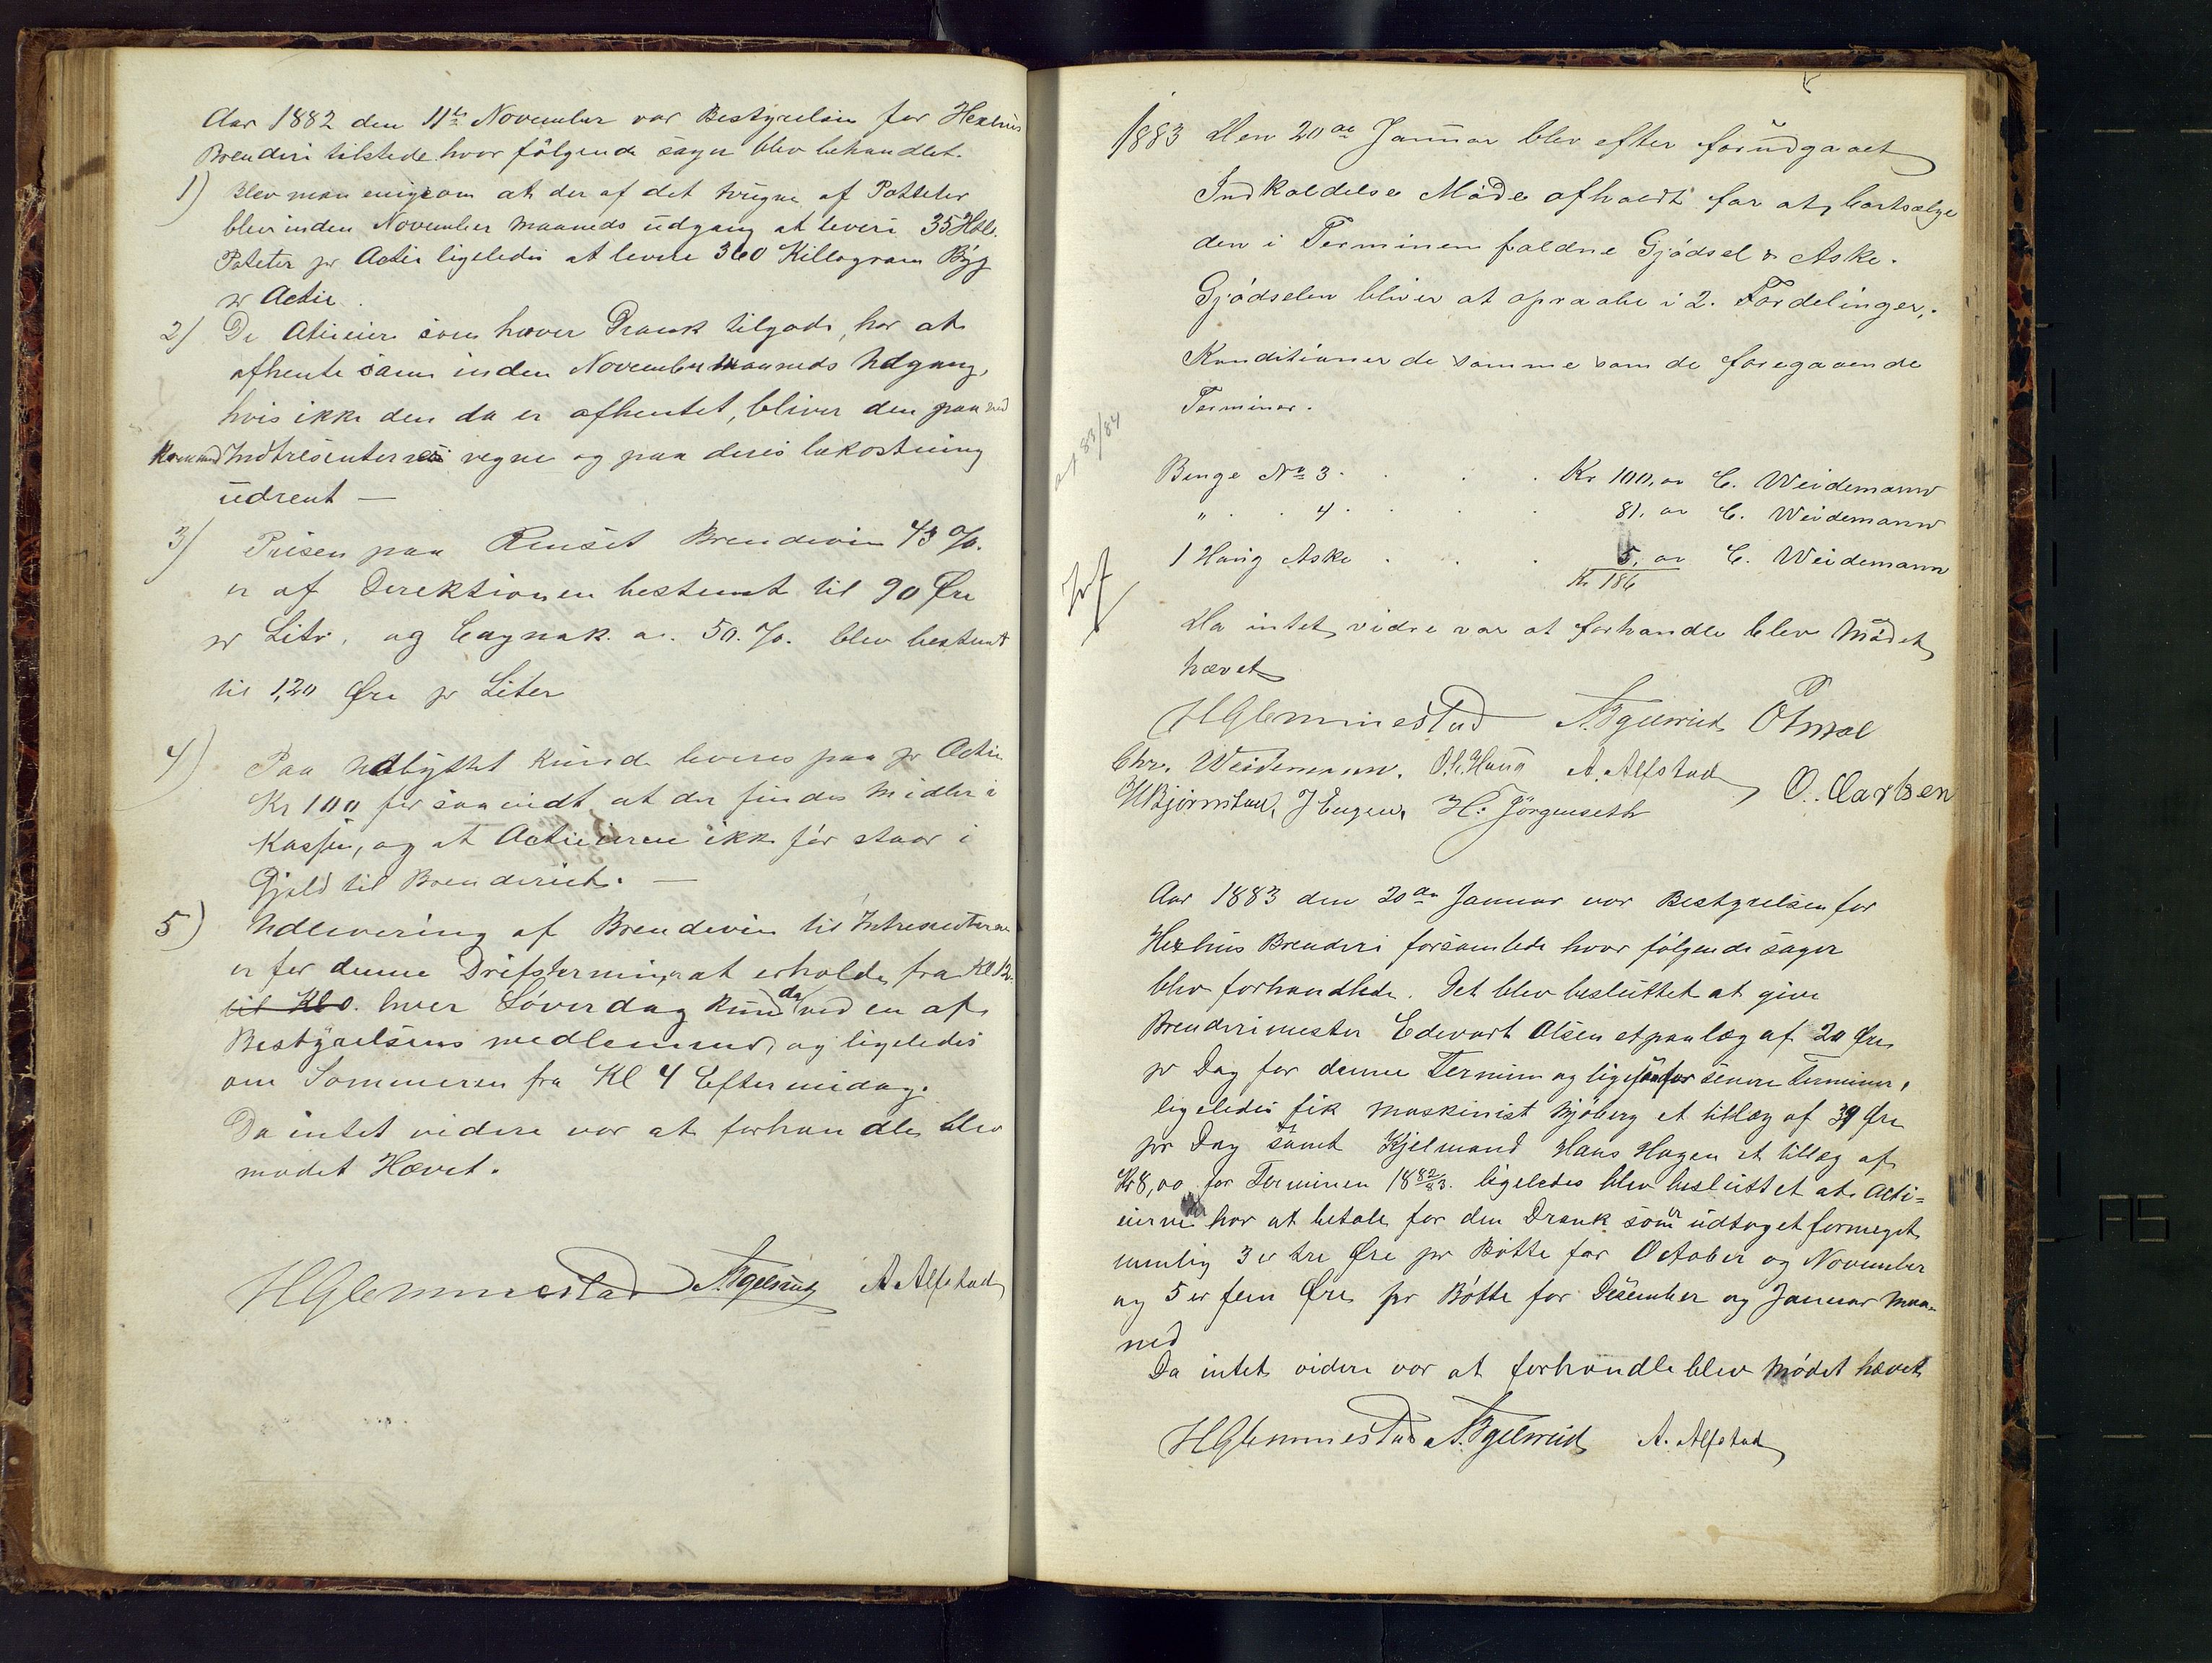 Aar 1882 den 11te November var Bestyrelsen for Hexhus
Brenderi tilstede hvor fölgende sager blev behandlet.
1) blev man enige om at der af det tvugne af Potteter
blev inden November Maaneds udgang at levere 35 Htl.
Poteter pr Actie ligeledes at levere 360 Killogram Byg
pr Actie.
2) De Atieier som haver Drank tilgode, har at
afhente sam inden November Maaneds Udgang,
hvis ikke den da er afhentet, bliver den paa ved
Kommend Indtresenternes regne og paa deres bekostning
udrent —
3) Prisen paa Renset Brendevin 43 %.
er af Direktionen bestemt til 90 Øre
pr Litr, og Cognak. a. 50. %. blev bestemt
til 1,20 Øre pr Liter
4) Paa Udbyttet kund leveres paa pr Actie
Kr 100 for saavidt at der findes Midler i
Kassen, og at Actieieren ikke før staar i
Gjeld til Brenderiet. —
5) Udlevering af Brendevin til Intresenterne
er for denne Drifstermin at erholde fra Kl 12.
til Kl 0. hver Löverdag kund da ved en af
Bestyrelsens medlemmer, og ligeledes
om Sommeren fra Kl 4 Eftermidag.
Da intet videre var at forhandle blev
mödet Hævet.
HGlemmestad A. Alfstad
1883 Den 20de Januar blev efter forudgaaet
Indkaldelse Möde afholdt for at bortsælge
den i Terminen faldne Gjödsel & Aske.
Gjödselen bliver at opraabe i 2. Fordelinger.
Konditioner de samme som de foregaaende
Terminer.
83/84
Binge No 3 . . . Kr 100,00 C. Weidemann
" . . 4 . . . 81,00 C. Weidemann
1 Haug Aske . . . 5,00 C. Weidemann
Kr 186
Da intet vidre var at forhandle blev Mödet
hævet
HGlemmestad
Chr. Weidemann. O. Haug A. Alfstad O. Carlsen
H Bjørnstad, J Engen, H. Jörgenseth
Aar 1883 den 20de Januar var Bestyrelsen for
Hexhus Brenderi forsamlede hvor fölgende sager
blev forhandlede. Det blev besluttet at give
Brenderimester Edevart Olsen et paalæg af 20 Øre
pr Dag for denne Termin og ligesaa for senere Terminer,
ligeledes fik Maskinist Mjöberg et tillæg af 39 Øre
pr Dag samt Kjelmand Hans Hagen et tillæg af
Kr 8,00 for Terminen 1882/83. ligeledes blev besluttet at Acti=
eierne har at betale for den Drank som er udtaget formeget
nemlig 3 er tre Øre pr Bötte for October og November
og 5 er fem Øre pr Bötte for Desember og Januar Maa-
ned
Da intet videre var at forhandle blev Mödet hævet
HGlemmestad A. Alfstad